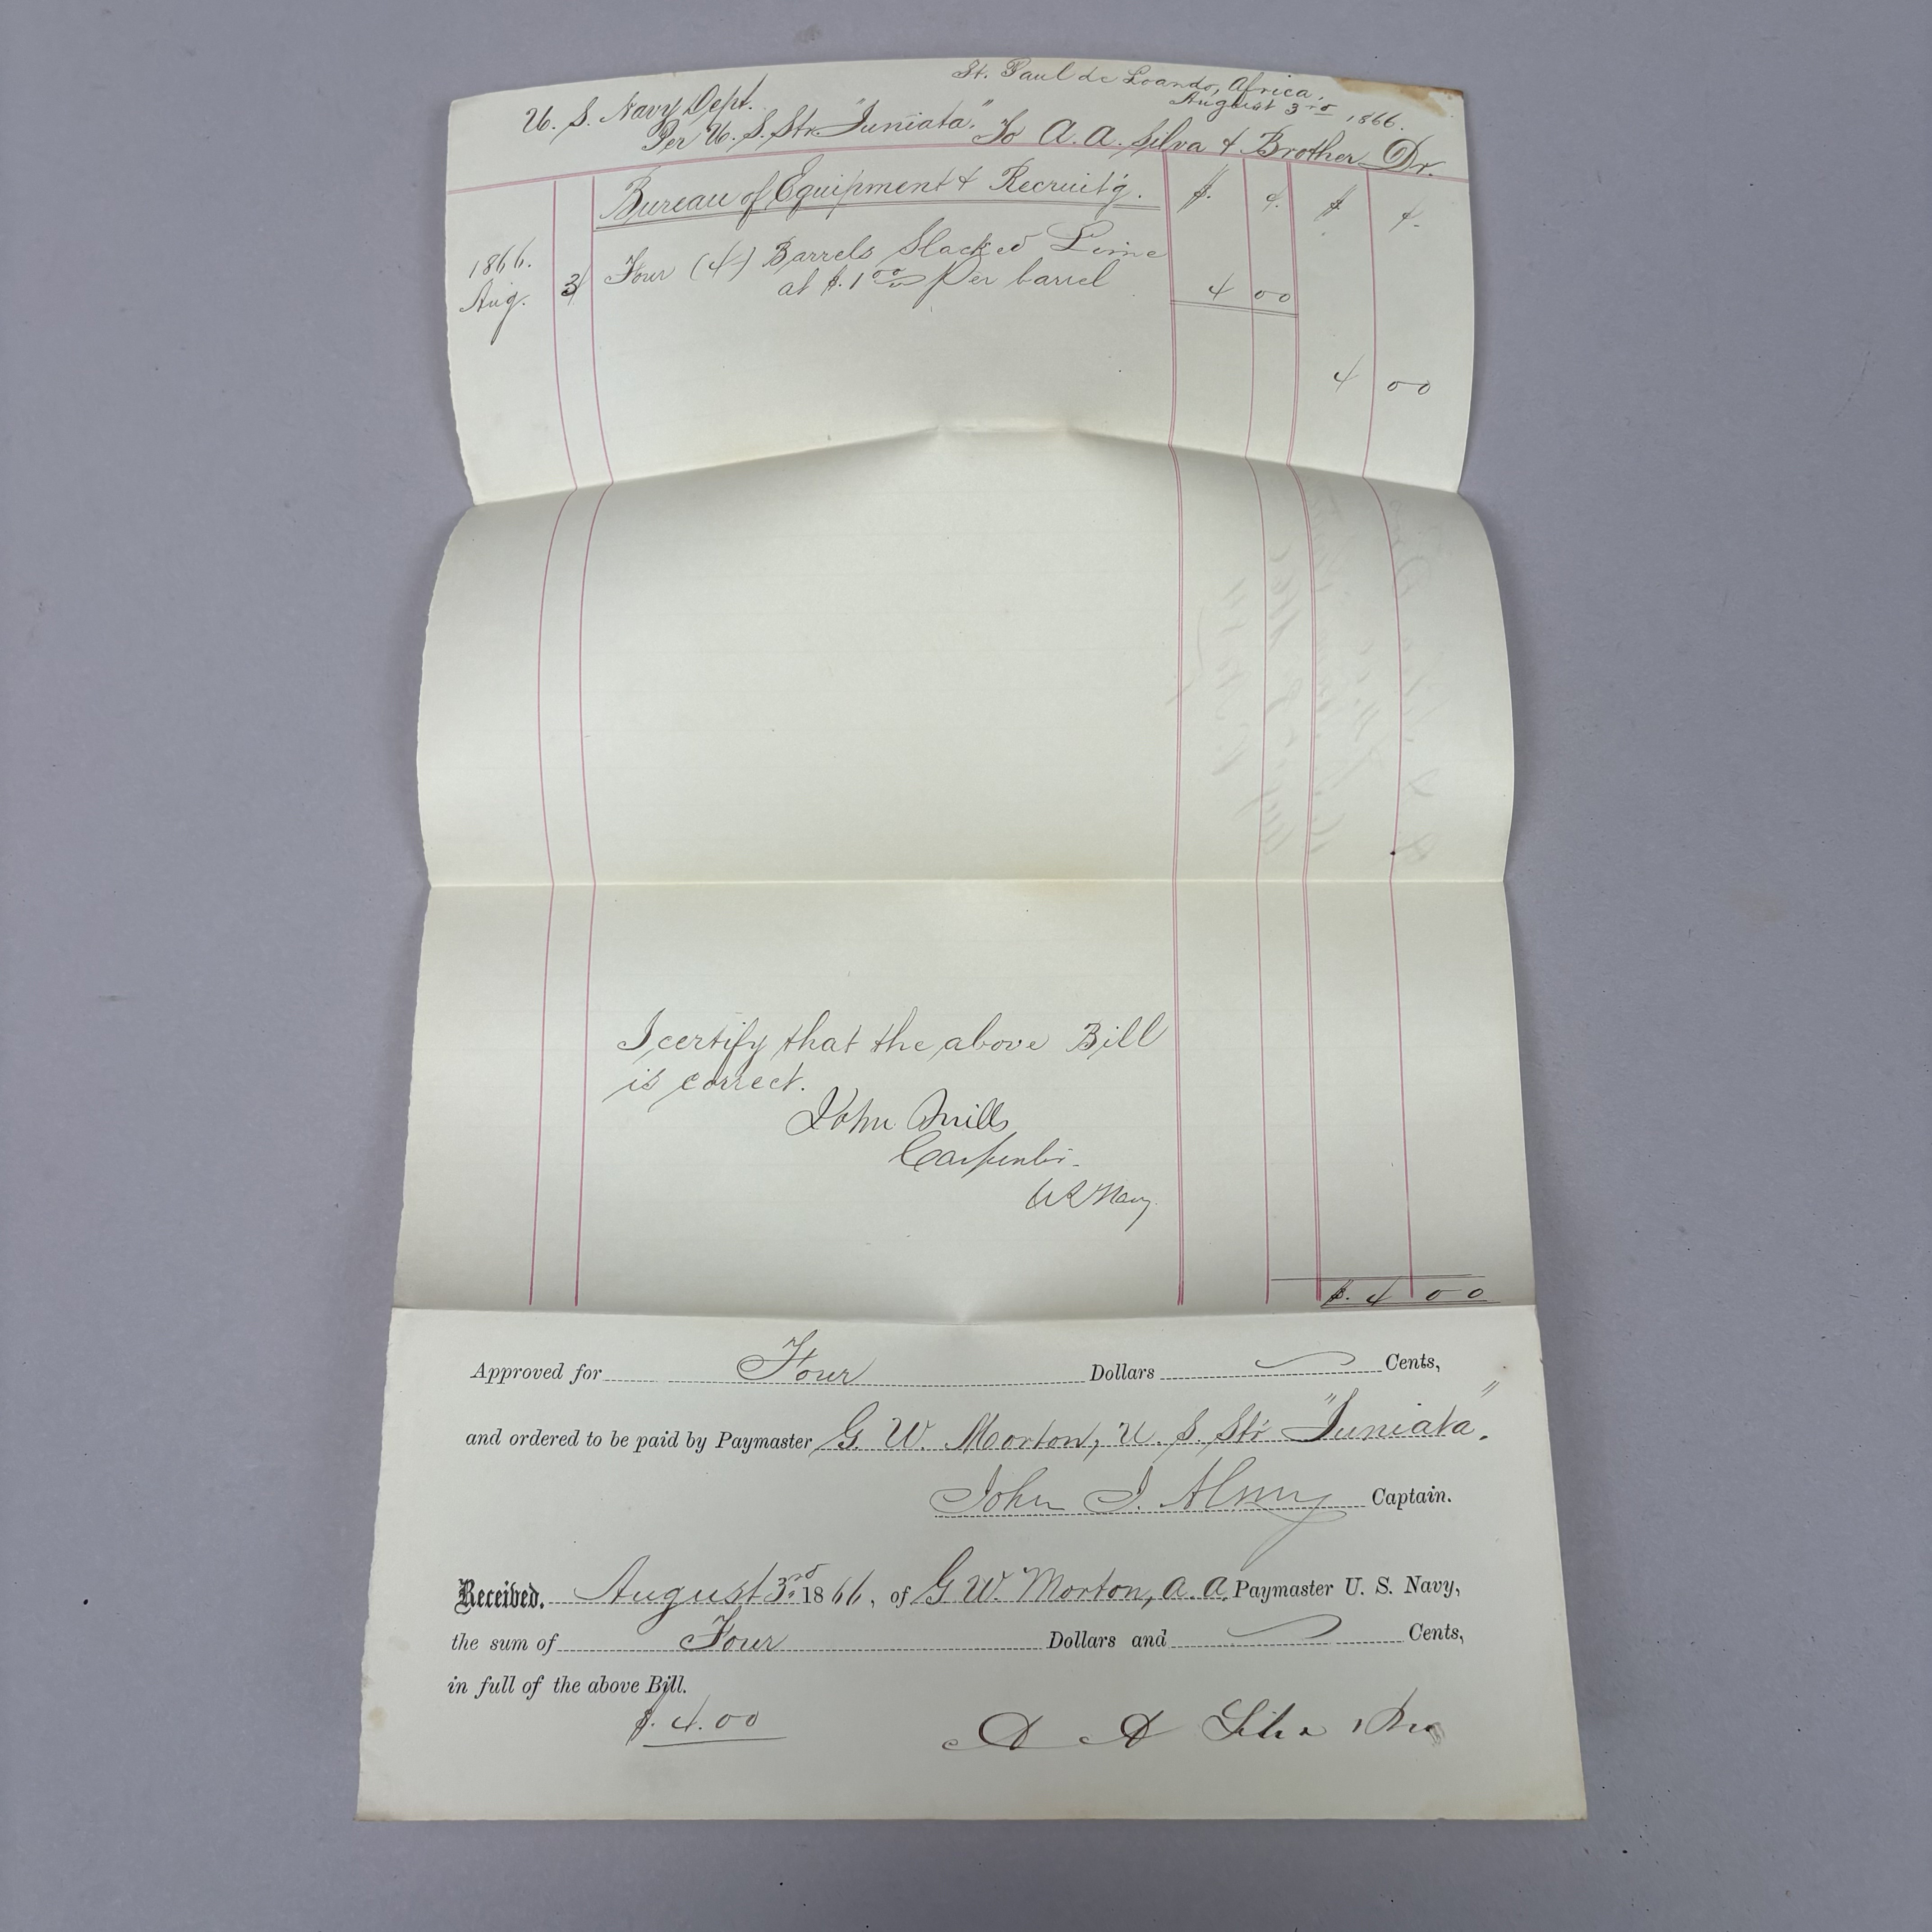 St. Paul de Loando, Africa.
August 3rd 1866.
U. S. Navy Dept.
Per U. S. Str. "Juniata." To A. A. Silva & Brother Dr.
Bureau of Equipment & Recruit'g. $. ¢. $ ¢.
1866. Four (4) Barrels Slacked Lime
Aug. 3 at $.1 00 Per barrel 4 00
4 00
I certify that the above Bill
is correct.
John Mills
Carpenter.
U S Navy.
$. 4 00
Approved for Four Dollars Cents,
and ordered to be paid by Paymaster G. W. Morton, U. S. Str "Juniata".
John J. Almy Captain.
Received, August 3rd. 1866, of G W. Morton, A. A. Paymaster U. S. Navy,
the sum of Four Dollars and Cents,
in full of the above Bill.
$. 4.00
A A Silva & Bro